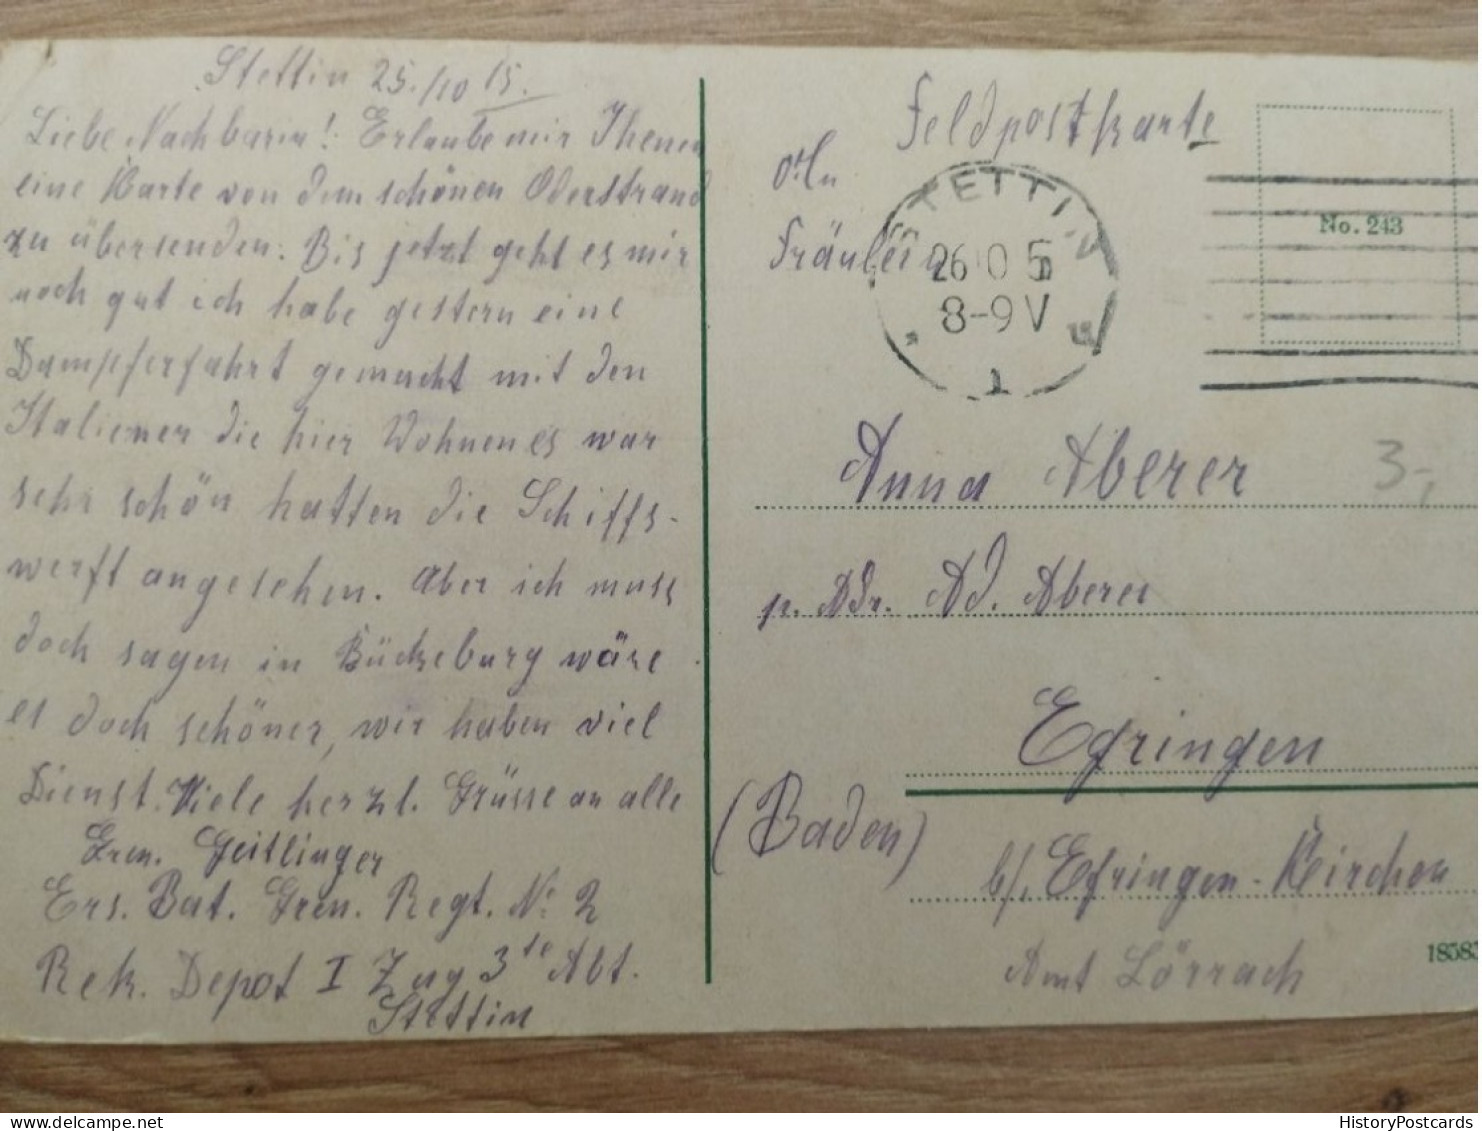 Stettin 25./10 15.
Liebe Nachbarin! Erlaube mir Ihenen
eine Karte von dem schönen Oderstrand
zu übersenden. Bis jetzt geht es mir
noch gut ich habe gestern eine
Dampferfahrt gemacht mit den
Italiener die hier Wohnen es war
sehr schön hatten die Schiffs-
werft angesehen. Aber ich muss
doch sagen in Bückeburg wäre
es doch schöner, wir haben viel
Dienst. Viele herzl. Grüsse an alle
Gren. Geitlinger
Ers. Bat. Gren. Regt. No 2
Rek. Depot I Zug 3te Abt.
Stettin
Feldpostkarte
An
Fräulein
STETTIN
26 10 5
8-9 V
1
No. 243
Anna Aberer
3,-
p. Adr. Ad. Aberer
Efringen
(Baden)
b/. Efringen-Kirchen
Amt Lörrach
18583
HistoryPostcards